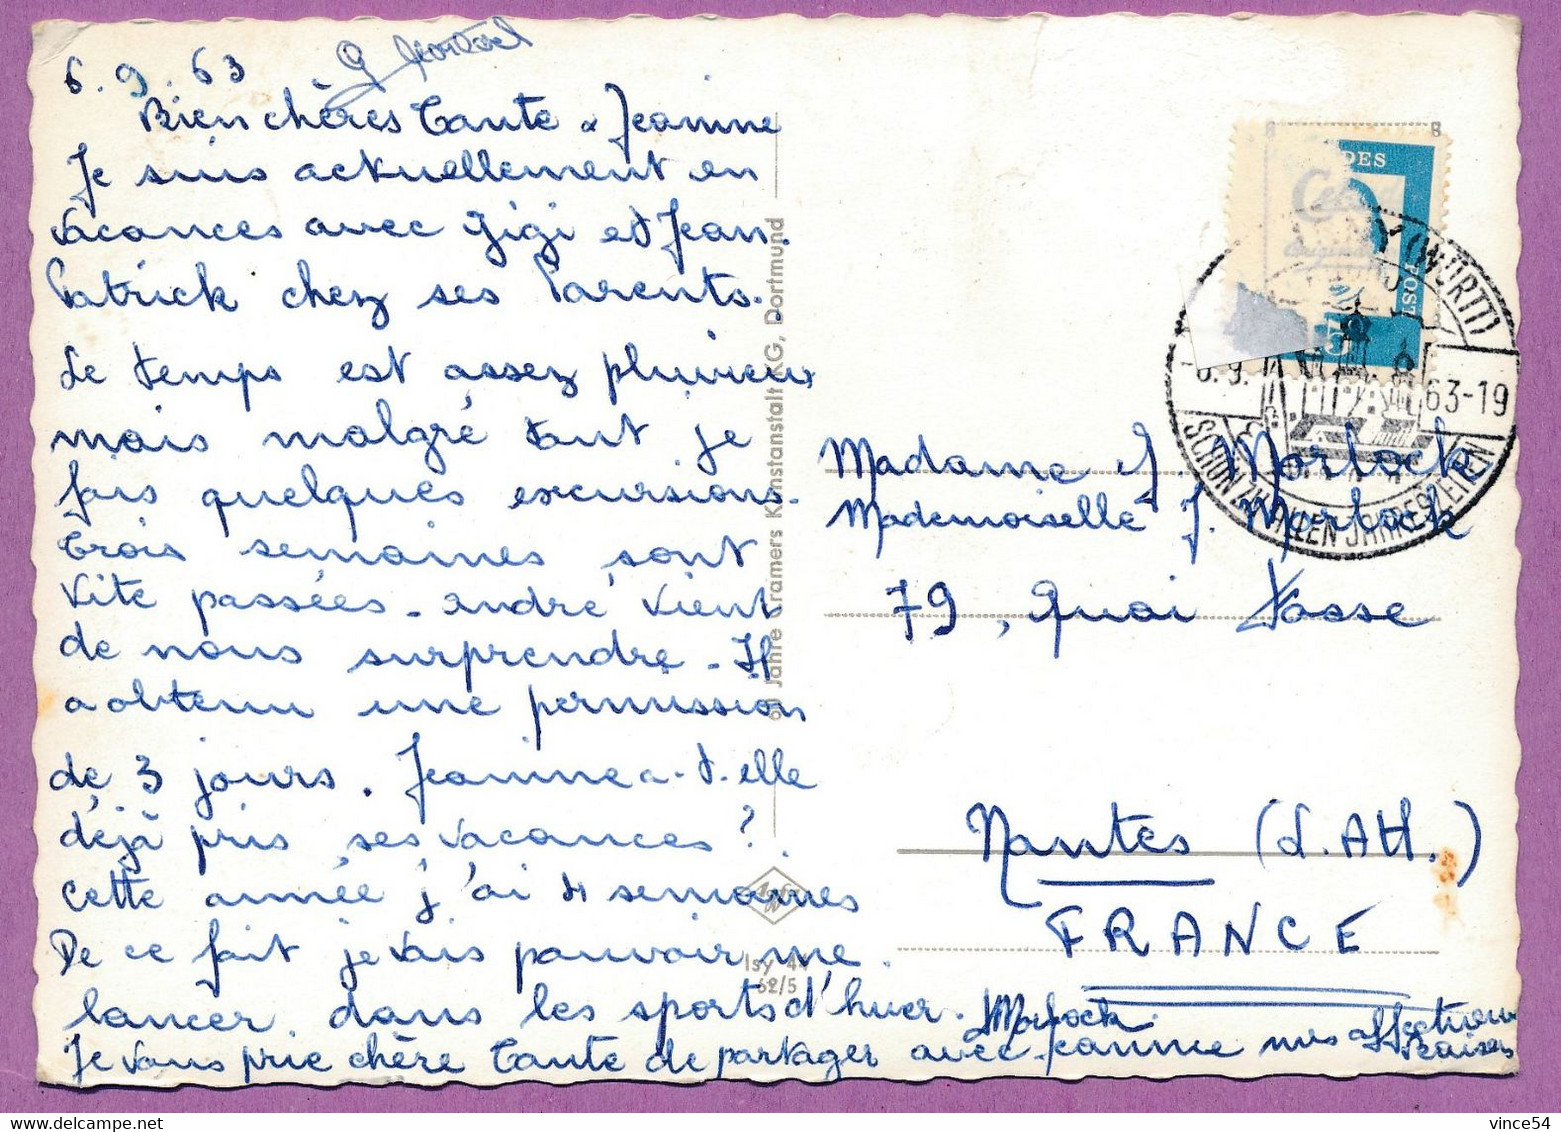 6.9.63
G Morlock
Bien chères Tante & Jeanine
Je suis actuellement en
vacances avec Gigi et Jean-
Patrick chez ses Parents.
Le temps est assez pluvieux
mais malgré tout je
fais quelques excursions.
Trois semaines sont
vite passées - André vient
de nous surprendre - Il
a obtenu une permission
de 3 jours. Jeanine a-t-elle
déjà pris ses vacances ?
Cette année j'ai 4 semaines
De ce fait je vais pouvoir me
lancer dans les sports d'hiver. Morlock
Je vous prie chère Tante de partager avec Jeanine mes affectueux
baisers
60 Jahre Cramers Kunstanstalt KG, Dortmund
Agfa
Isy 44
62/5
DES
POST
(WÜRTT)
-6.9.63-19
SCHÖN ZU ALLEN JAHRESZEITEN
Madame J. Morlock
Mademoiselle J. Morlock
79, Quai Fosse
Nantes (L. Atl.)
FRANCE
vince54